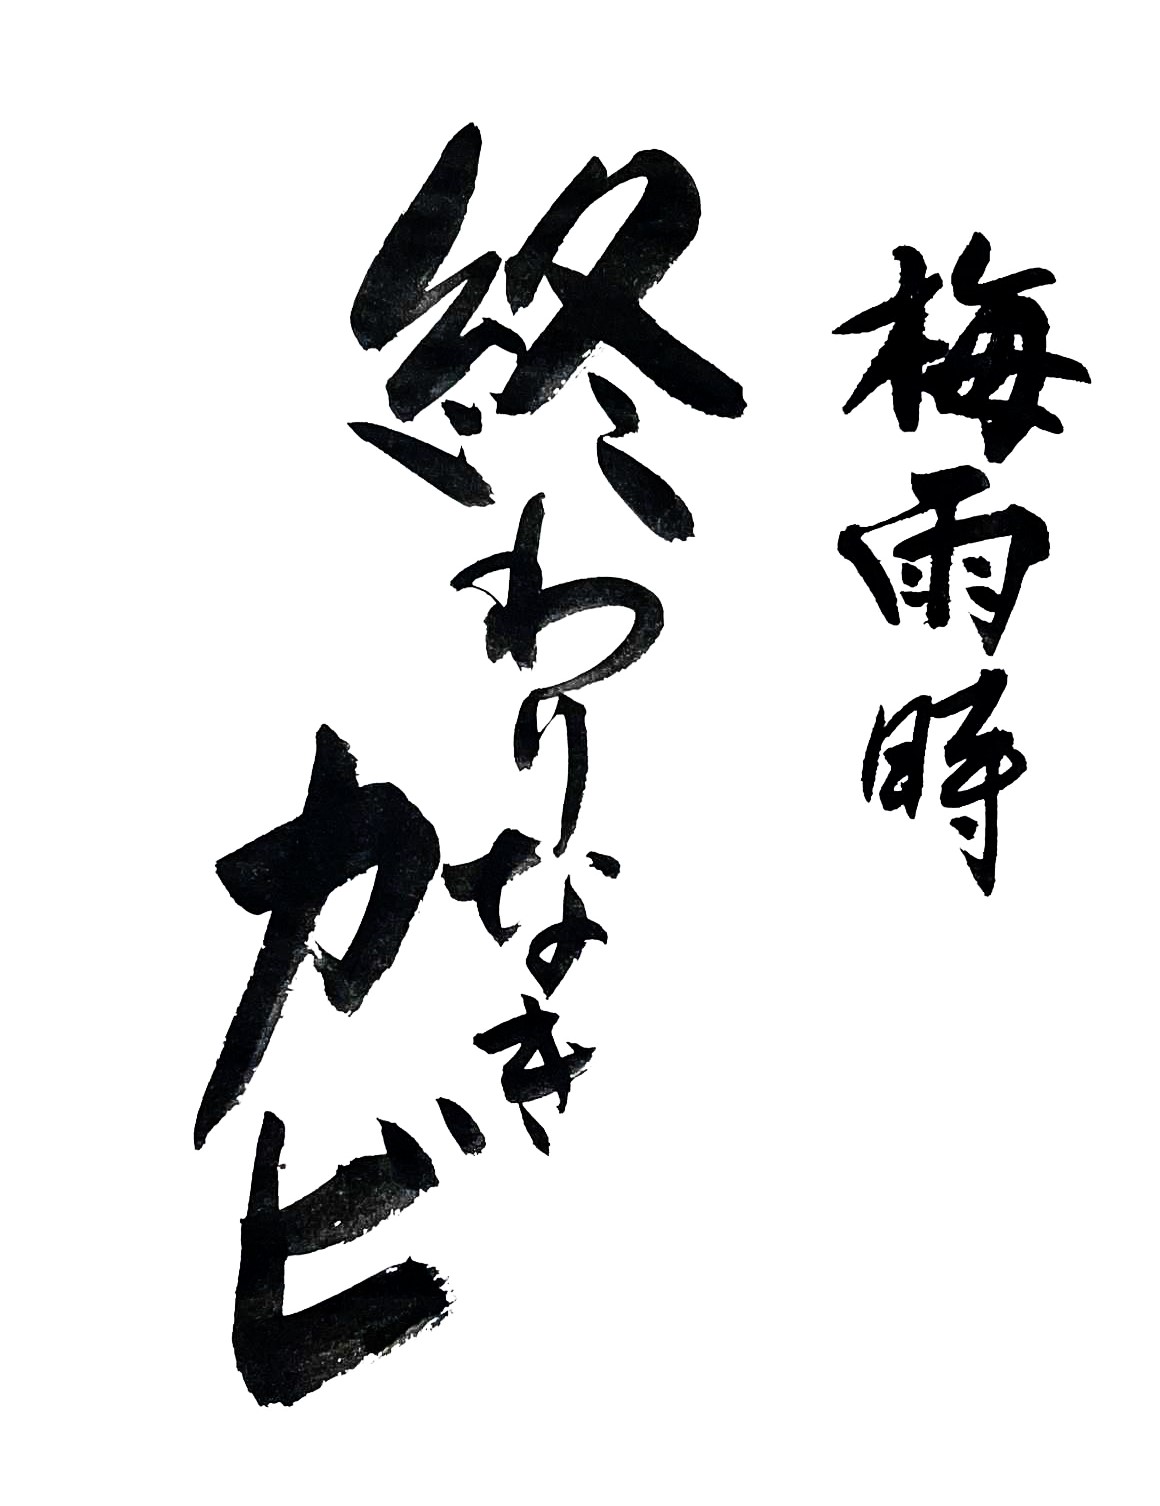 梅雨時
終わりなき
カビ